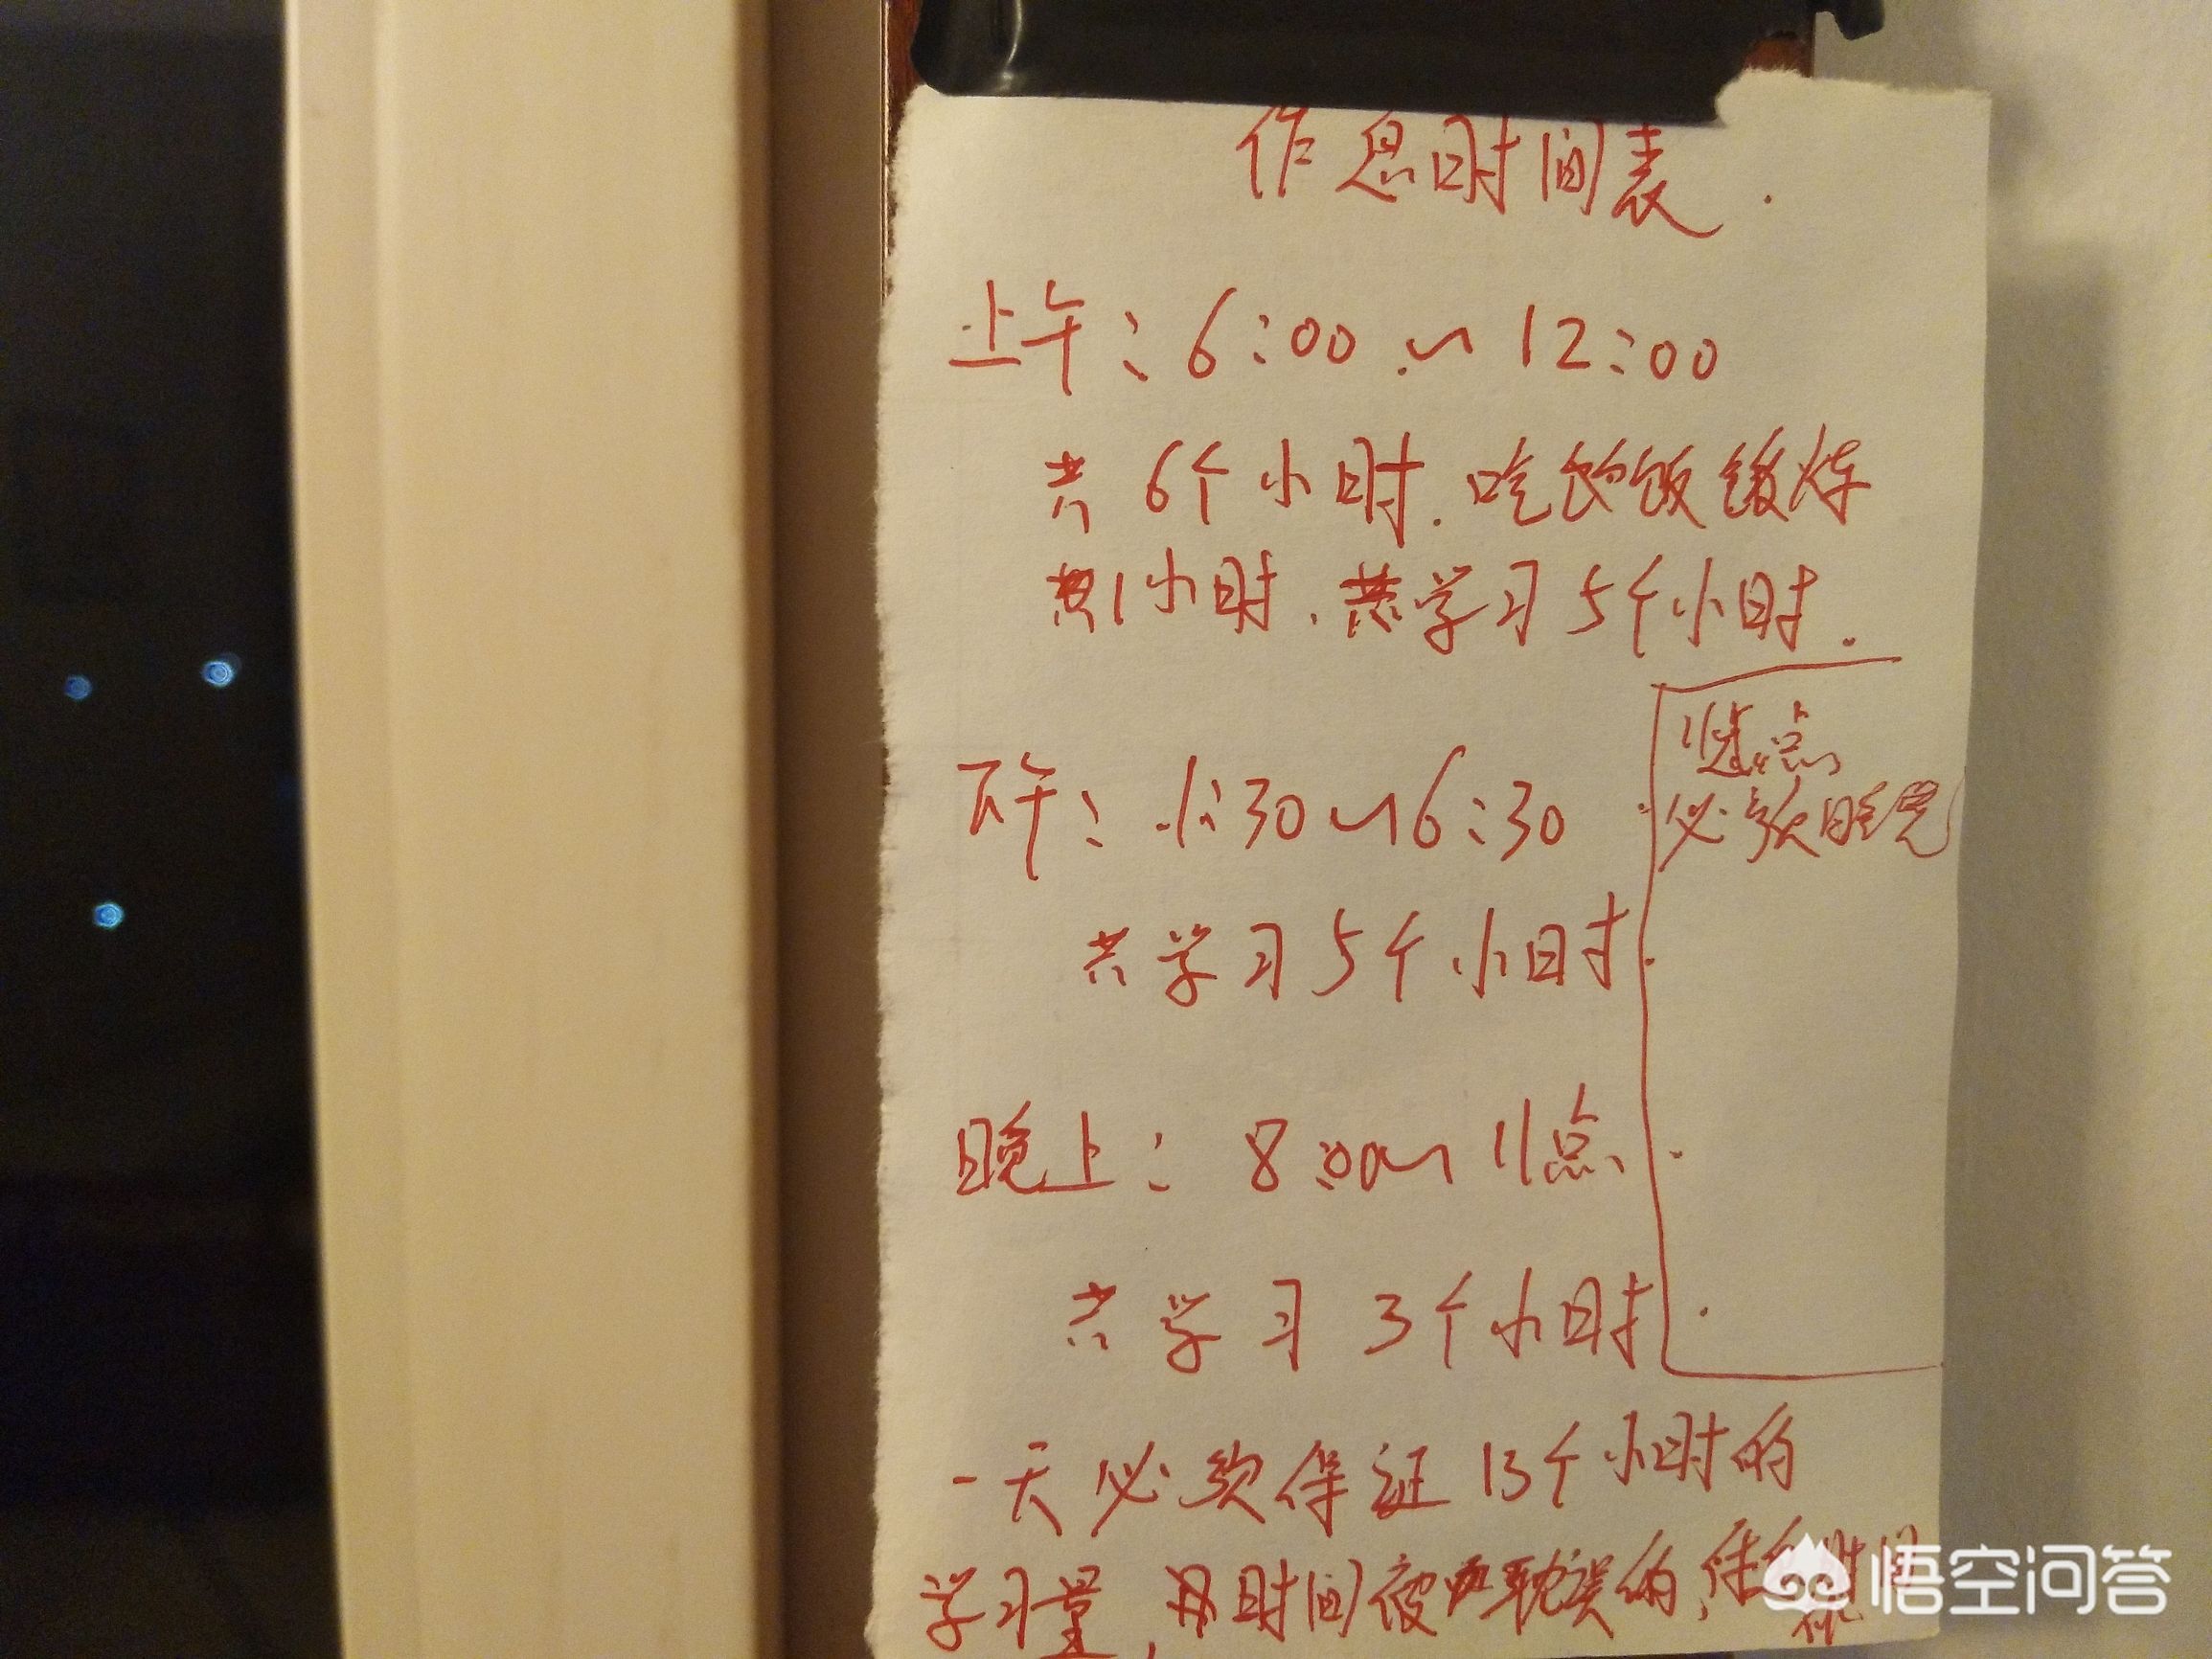 作息时间表.
上午: 6:00 ~ 12:00
共 6个小时. 吃饭锻炼
1小时. 学习5个小时.
下午: 1:30~6:30
共学习5个小时
11点
必须睡觉
晚上: 8:00~11点
共学习 3个小时
一天必须保证13个小时的
学习量, 时间被耽误的,
悟空问答